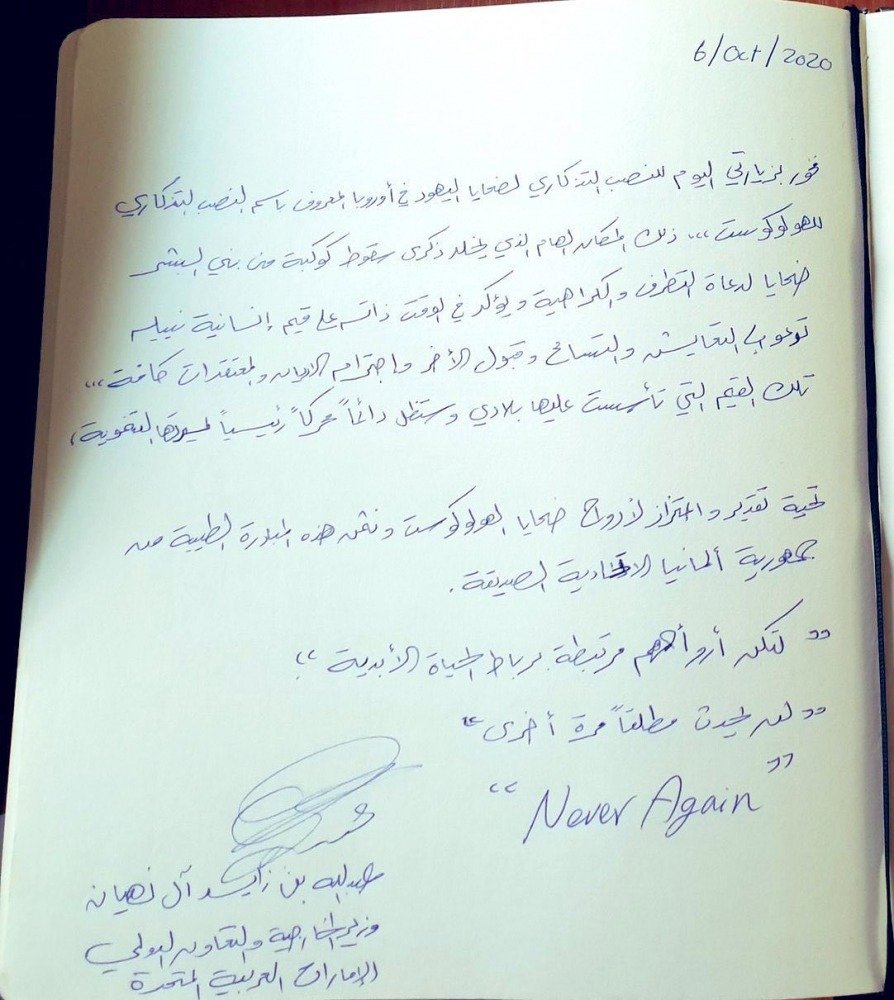 6/Oct/2020
فخور بزيارتي اليوم للنصب التذكاري لضحايا اليهود في أوروبا المعروف باسم النصب التذكاري
للهولوكوست ،،، ذلك المكان الهام الذي يخلد ذكرى سقوط كوكبة من بني البشر
ضحايا لدعاة التطرف والكراهية ويؤكد في الوقت ذاته على قيم إنسانية نبيله
تدعو الى التعايش والتسامح وقبول الآخر واحترام الاديان والمعتقدات كافة ،،،
تلك القيم التي تأسست عليها بلادي وستظل دائماً محركاً رئيسياً لمسيرتها التنموية،
تحية تقدير واعتزاز لأرواح ضحايا الهولوكوست ونثمن هذه المبادرة الطيبة من
جمهورية ألمانيا الاتحادية الصديقة.
" لتكن أرواحهم مرتبطة برباط الحياة الأبدية "
" لن يحدث مطلقاً مرة أخرى "
"Never Again"
عبدالله بن زايد آل نهيان
وزير الخارجية والتعاون الدولي
الإمارات العربية المتحدة